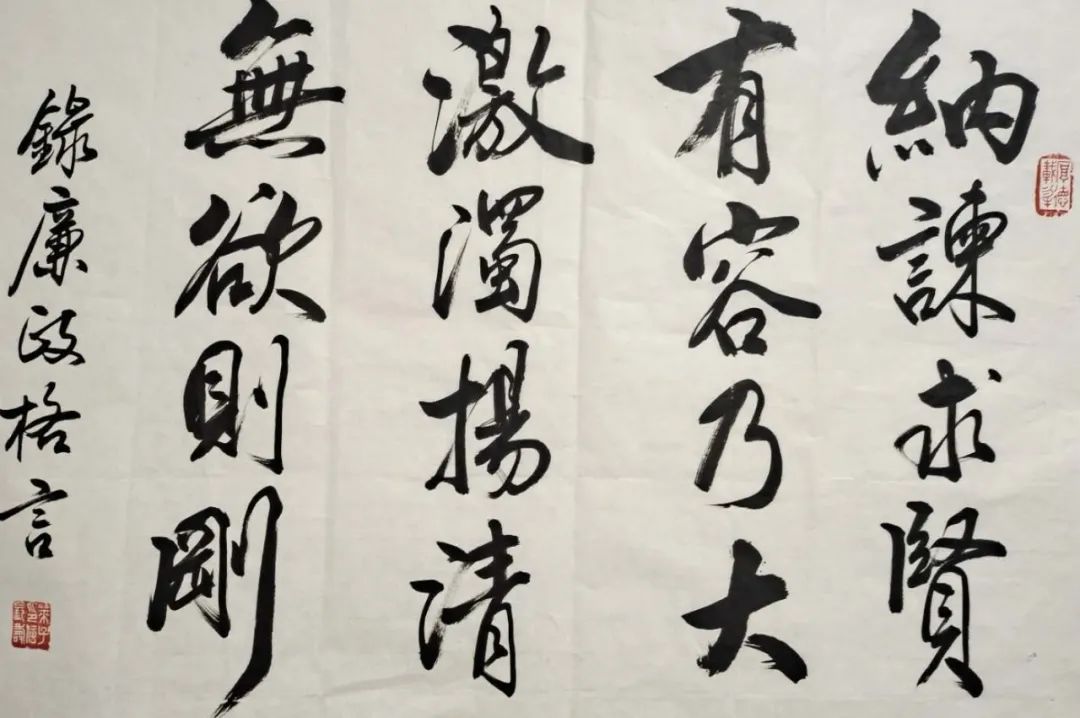 納諫求賢
有容乃大
激濁揚清
無欲則剛
錄廉政格言